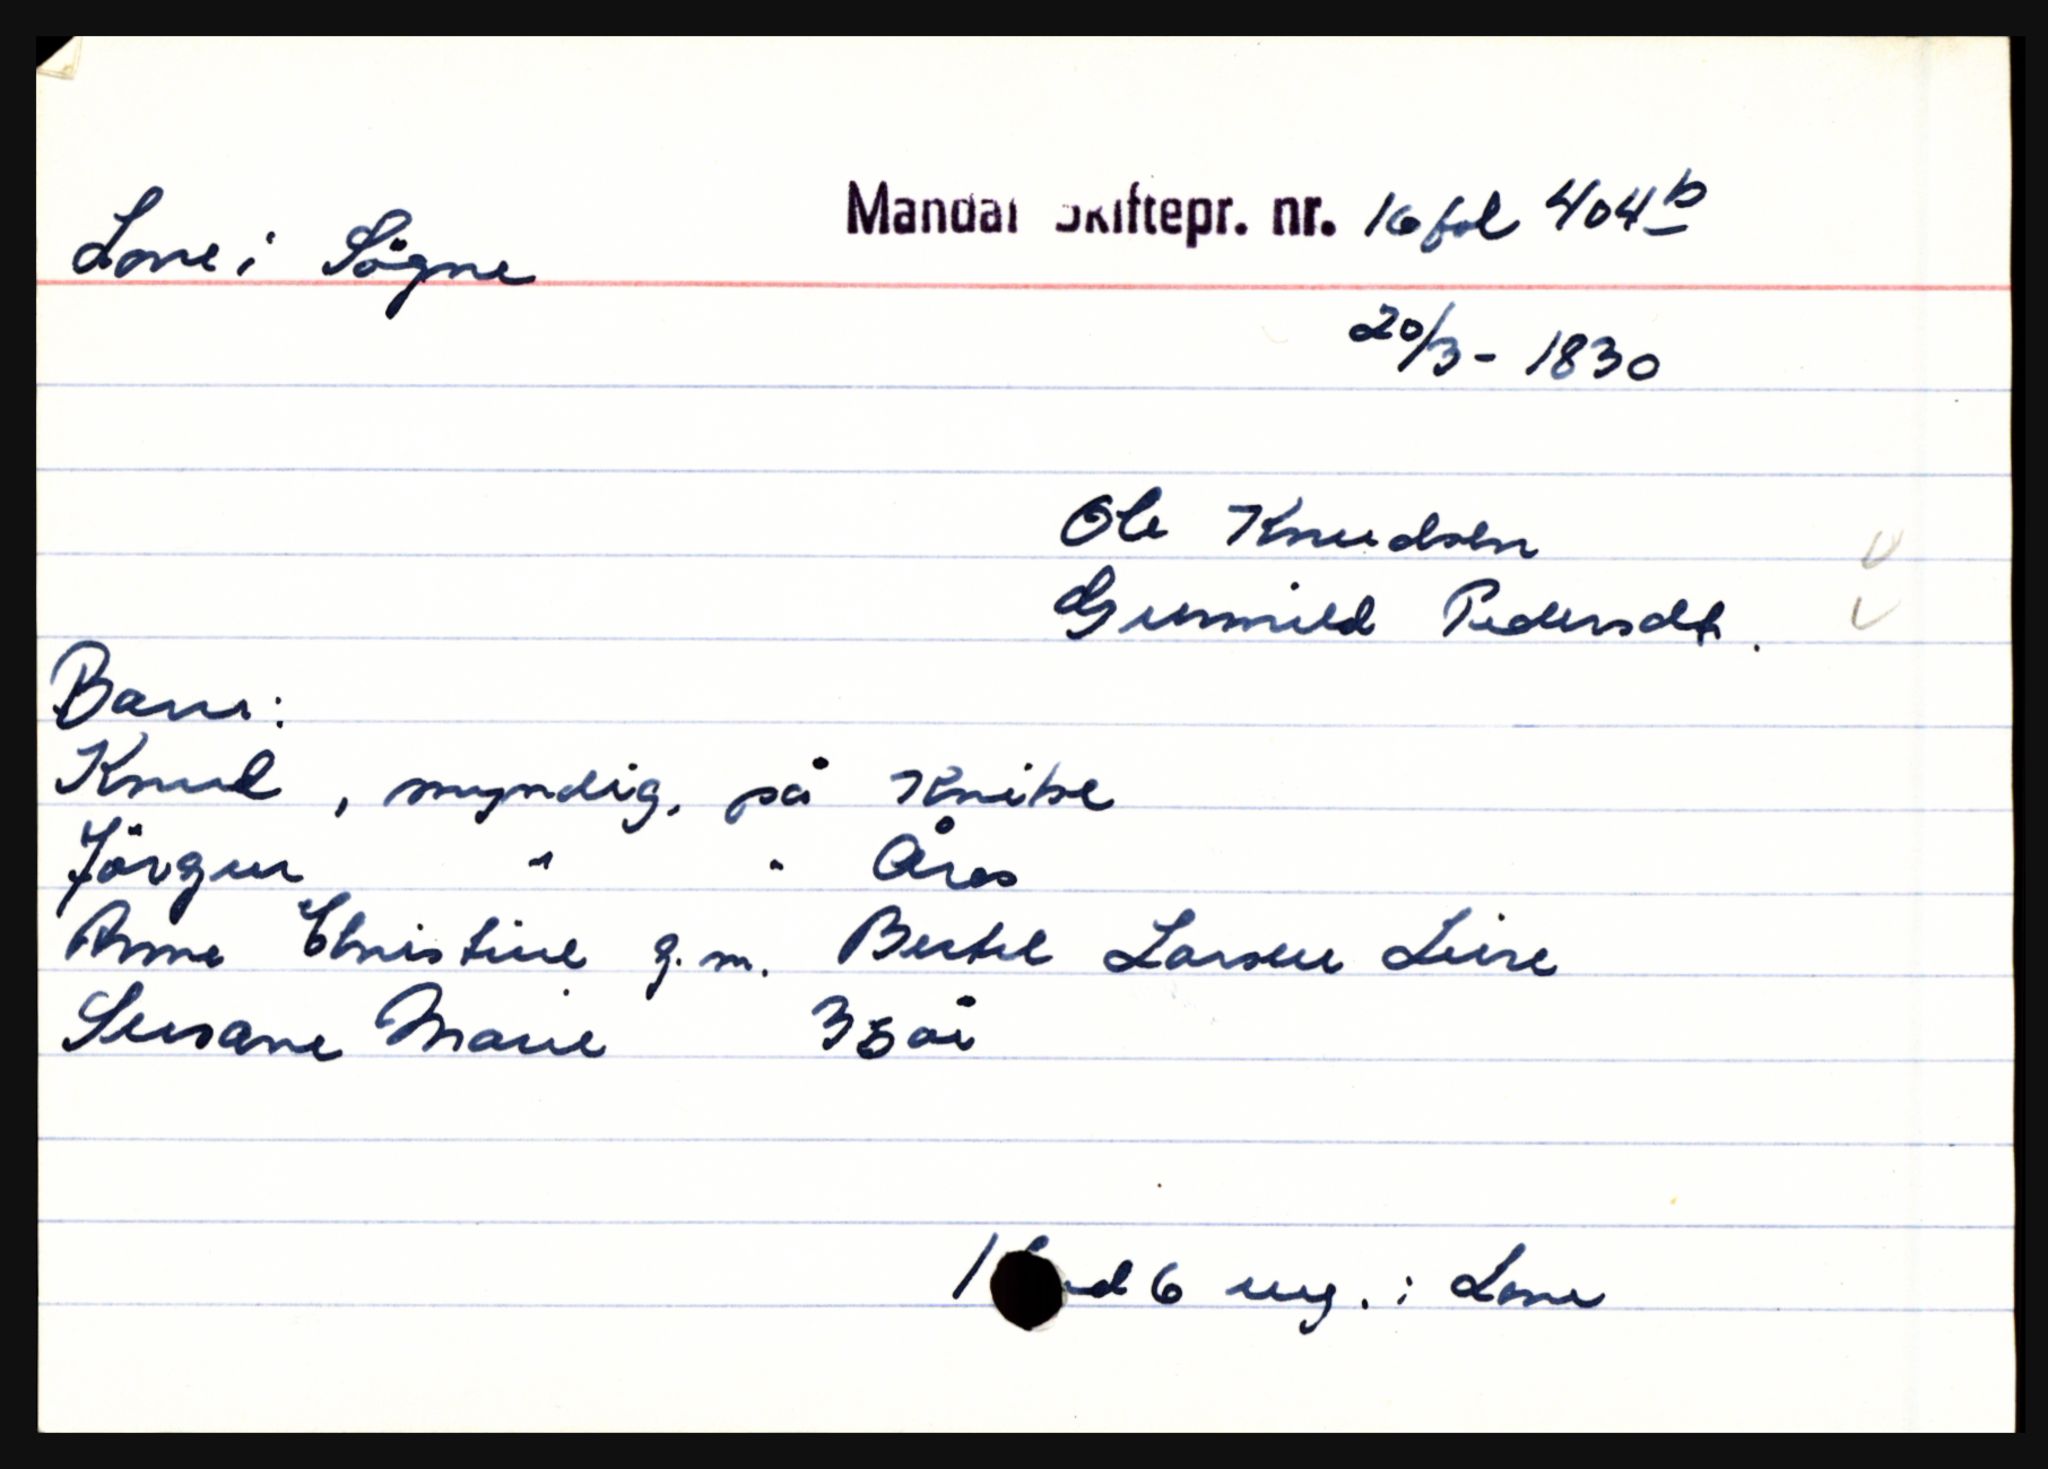 Mandal Skiftepr. nr. 16 fol 404b
Lone i Sögne
20/3 - 1830
Ole Knudsen
Gunnild Pedersdt.
Barn:
Knud, myndig, på Knibe
Jörgen " " Åros
Anne Christine g. m. Bertel Larsen Leire
Susane Marie 35 år
1 hud 6 eng. i Lone